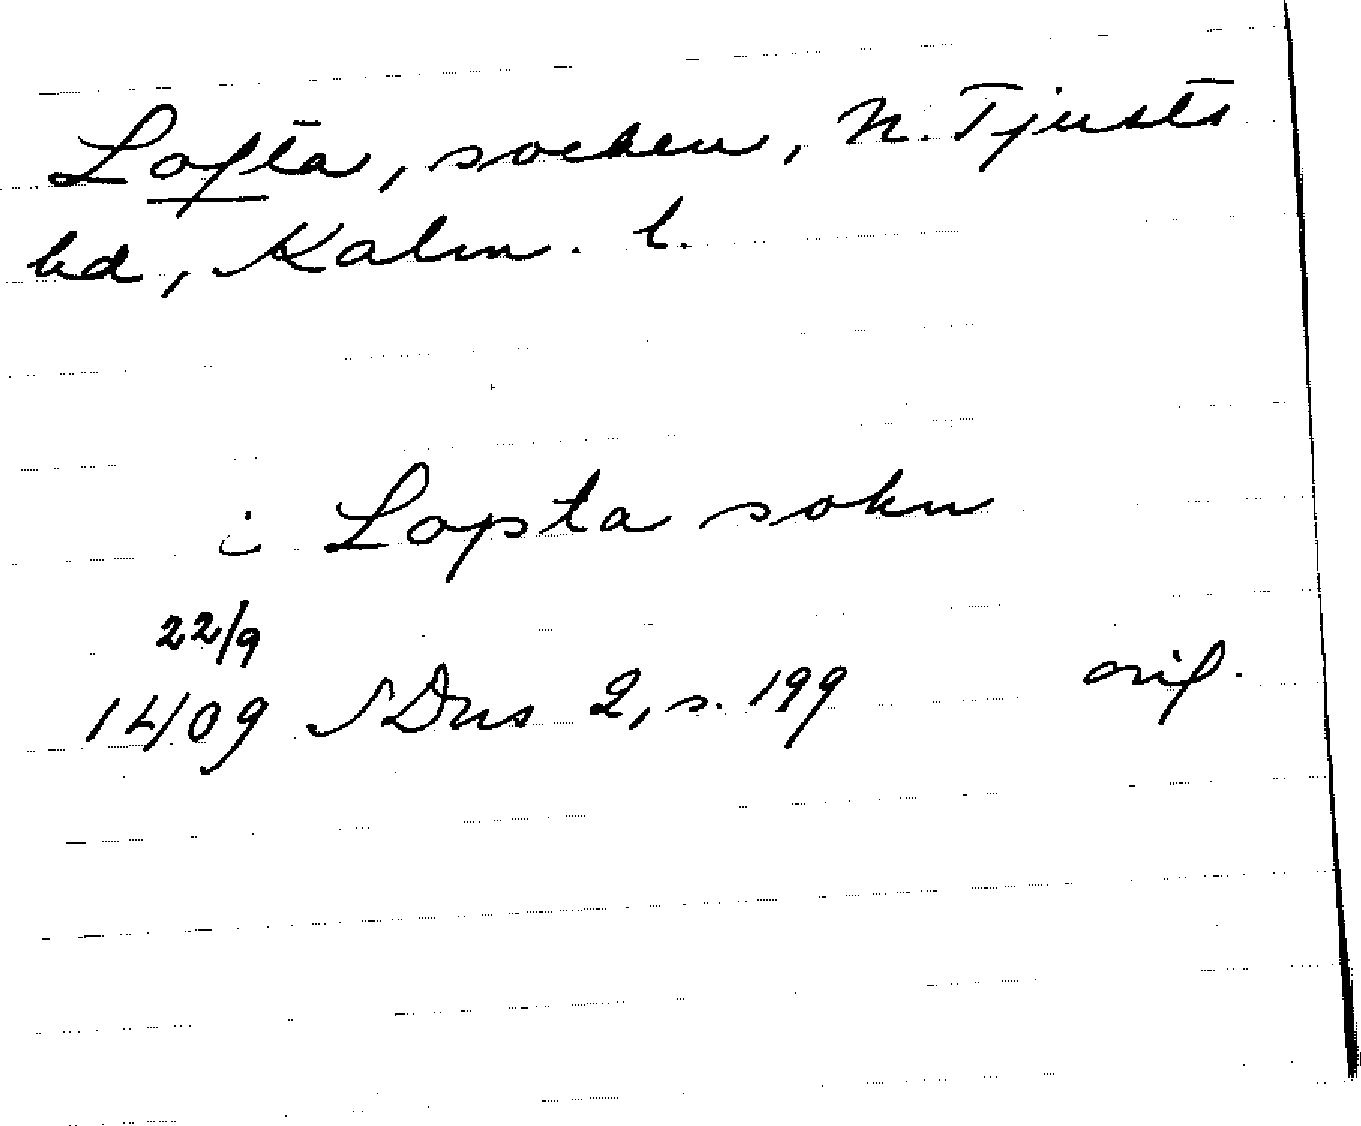 Lofta, socken, N. Tjusts
hd, Kalm. l.
i Lopta sokn
22/9
1409 SDns 2, s. 199 orig.